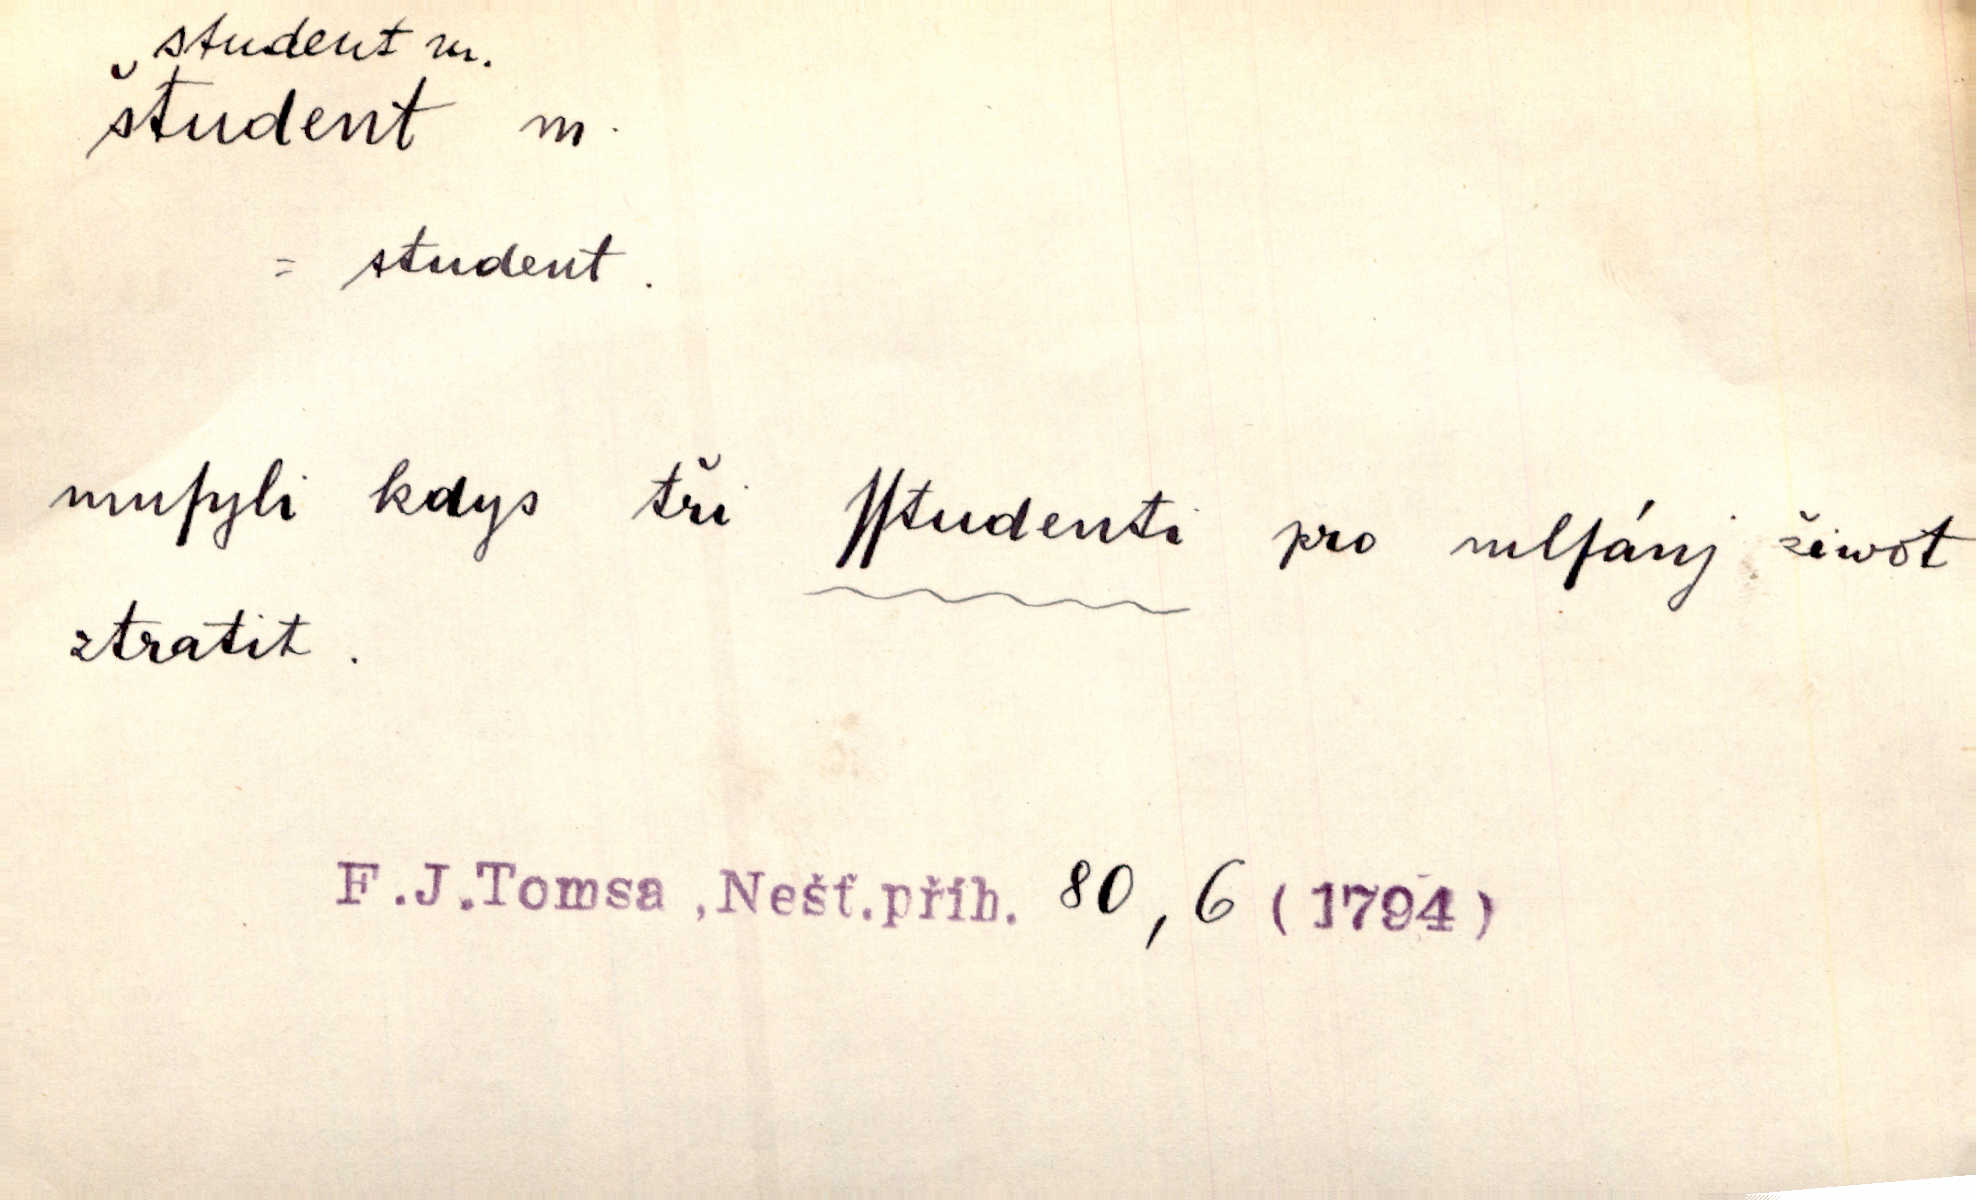 student m.
študent m.
= student.
muſyli kdys tři ſſtudenti pro mlſánj žiwot
ztratit.
F.J.Tomsa ,Nešť.příh. 80,6 (1794)